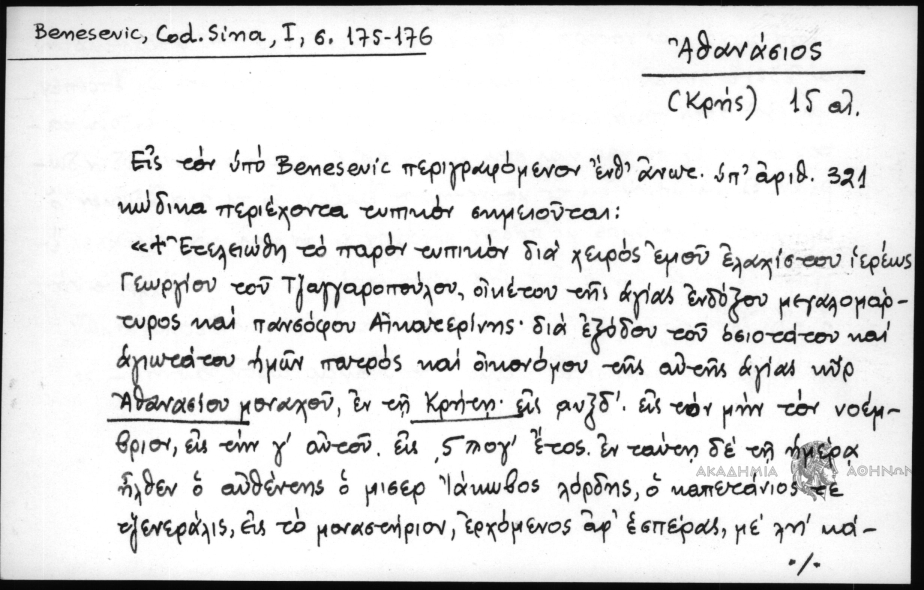 Benesevic, Cod. Sina, I, σ. 175-176
Ἀθανάσιος
(Κρής) 15 αἰ.
Εἰς τόν ὑπό Benesevic περιγραφόμενον ἔνθ' ἀνωτ. ὑπ' ἀριθ. 321
κώδικα περιέχοντα τυπικόν σημειοῦται:
«+ Ἐτελειώθη τό παρόν τυπικόν διά χειρός ἐμοῦ ἐλαχίστου ἱερέως
Γεωργίου τοῦ Τζαγγαροπούλου, οἰκέτου τῆς ἁγίας ἐνδόξου μεγαλομάρ-
τυρος καί πανσόφου Αἰκατερίνης· διά ἐξόδου τοῦ ὁσιοτάτου καί
ἁγιωτάτου ἡμῶν πατρός καί οἰκονόμου τῆς αὐτῆς ἁγίας κῦρ
Ἀθανασίου μοναχοῦ, ἐν τῇ Κρήτῃ· εἰς αυξδ'. εἰς τόν μήν τόν νοέμ-
βριον, εἰς τήν γ' αὐτοῦ. εἰς ͵ςπογ' ἔτος. ἐν ταύτῃ δέ τῇ ἡμέρᾳ
ἦλθεν ὁ αὐθέντης ὁ μισερ Ἰάκωβος λόρδης, ὁ καπετάνιος τε
τζενεράλις, εἰς τό μοναστήριον, ἐρχόμενος ἀφ' ἑσπέρας, μέ λη' κά-
./.
ΑΚΑΔΗΜΙΑ ΑΘΗΝΩΝ